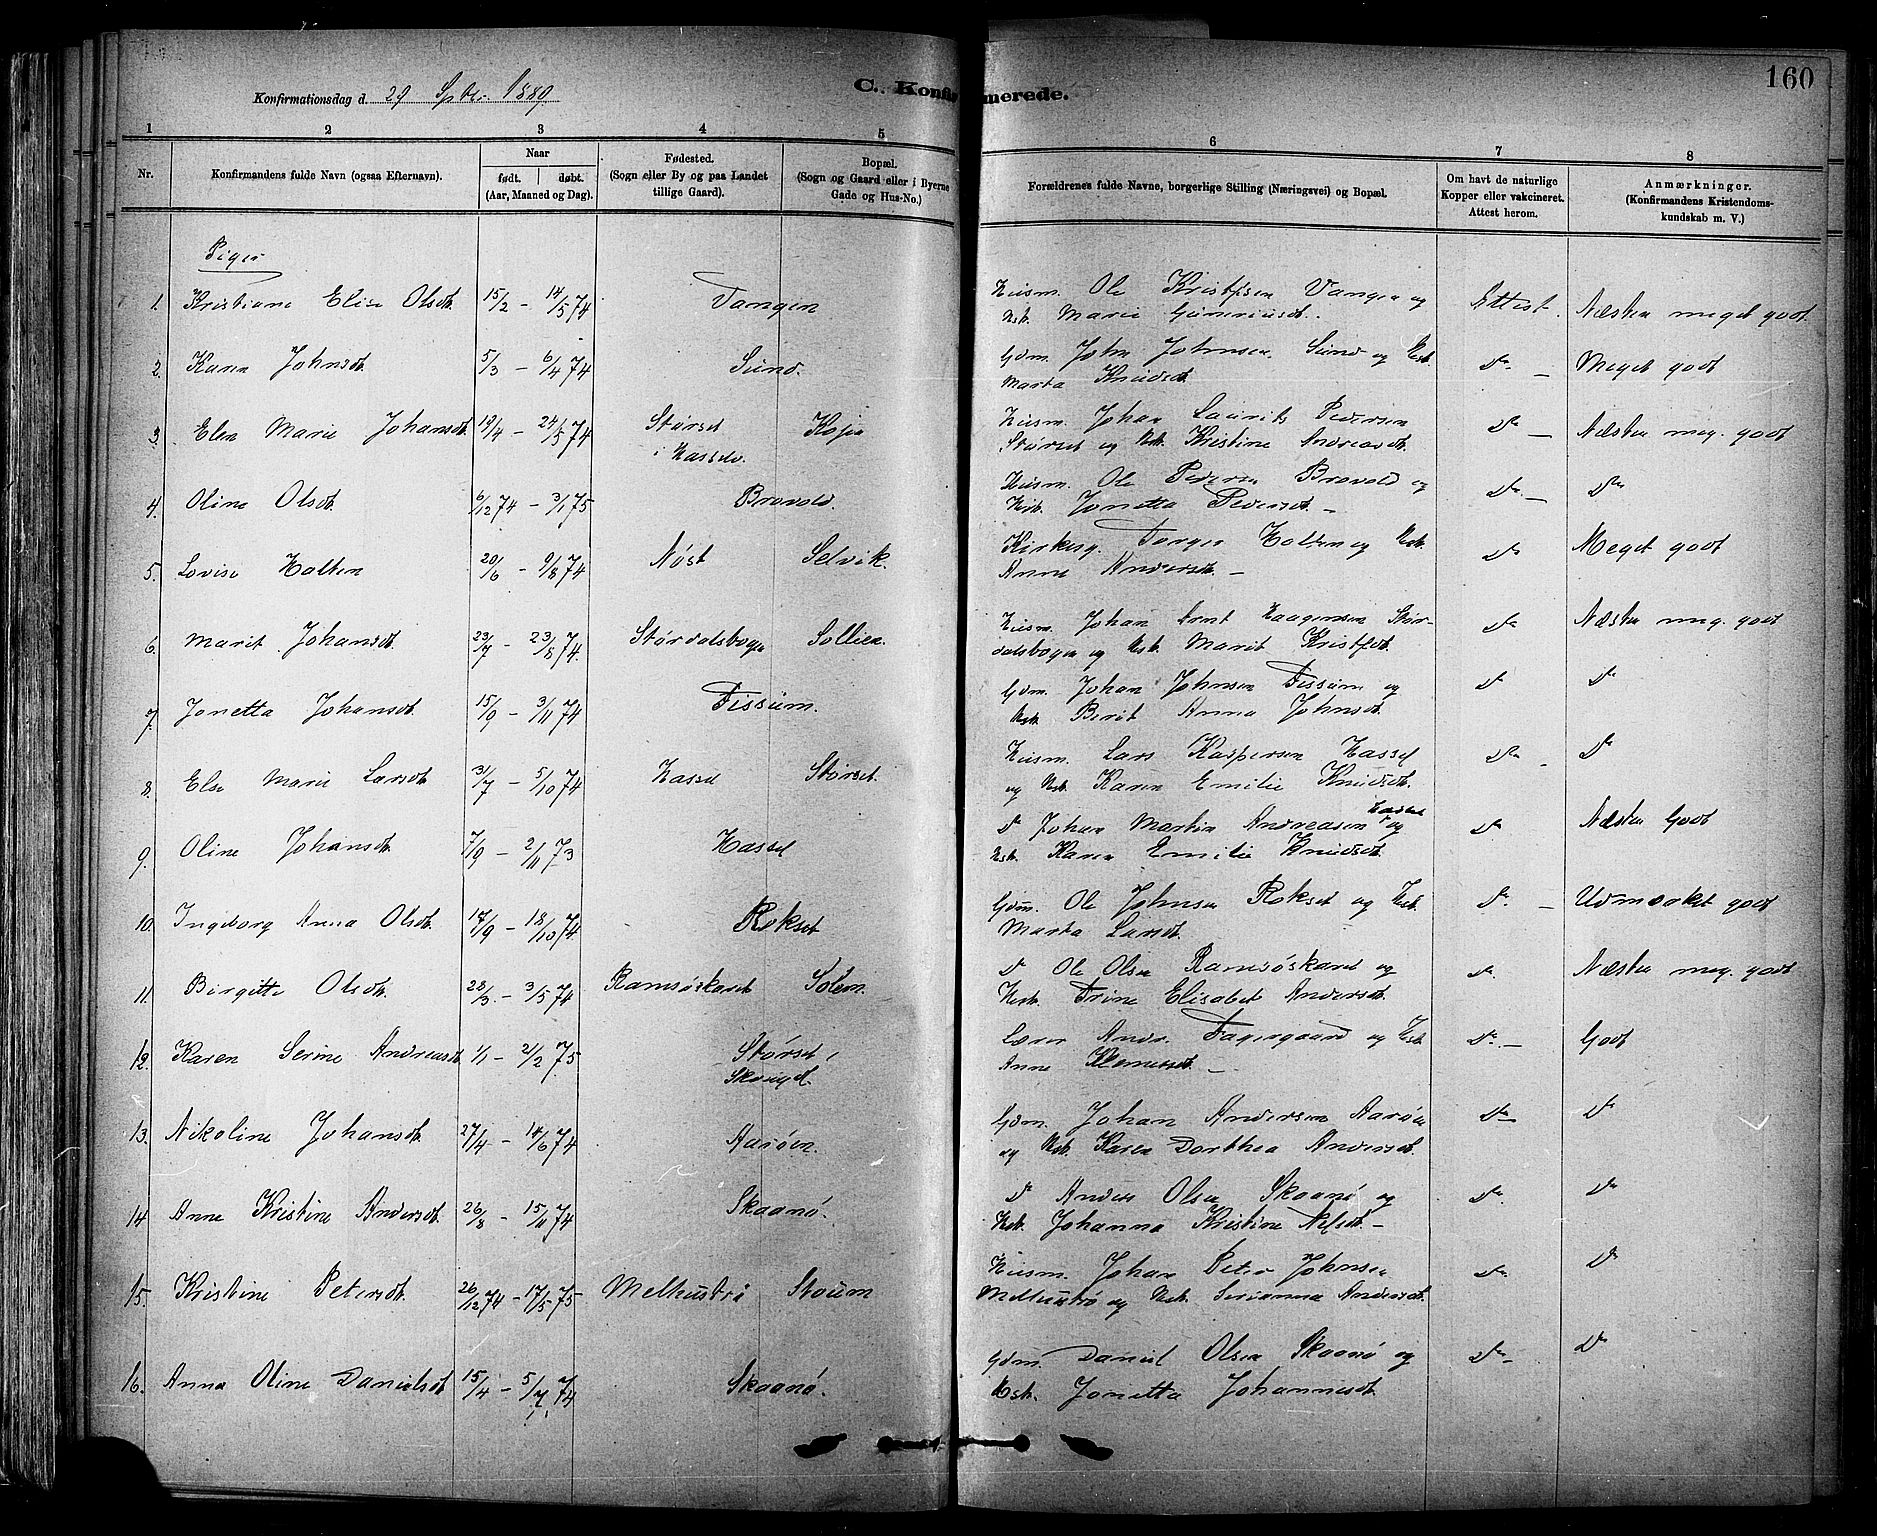 Konfirmationsdag d. 29 Septbr. 1889.
C. Konfirmerede.
160
1 2 3 4 5 6 7 8
Nr.
Konfirmandens fulde Navn (ogsaa Efternavn).
Naar
født. døbt.
(Aar, Maaned og Dag).
Fødested.
(Sogn eller By og paa Landet
tillige Gaard).
Bopæl.
(Sogn og Gaard eller i Byerne
Gade og Hus-No.)
Forældrenes fulde Navne, borgerlige Stilling (Næringsvei) og Bopæl.
Om havt de naturlige
Kopper eller vakcineret.
Attest herom.
Anmærkninger.
(Konfirmandens Kristendoms-
kundskab m. V.)
Piger
1. Kristiane Elise Olsdt. 15/2 - 14/5 74 Vangen Husm. Ole Kristfsen Vangen og Attest. Næsten meget godt.
Hst. Marie Guneriusdt.
2. Karen Johnsdt. 5/3 - 6/4 74 Sund. Gdm. John Johnsen Sund og Hst. Do - Meget godt
Marta Knudsdt.
3. Elen Marie Johansdt. 19/4 - 24/5 74 Størset Husm. Johan Laurits Pedersen Do - Næsten meg. godt
i Hasselv. Størset og Hst. Kristine Andreasdt.
4. Oline Olsdt. 6/12 74 - 3/1 75 Bravold. Husm. Ole Pedersen Bravold og Do - Do
Hst. Jonetta Pedersdt. -
5. Lovise Holten 20/6 - 9/8 74 Nøst Selvik. Kirkesg. Torger Holten og Hst. Do Meget godt
Anne Andersdt. -
6. Marit Johansdt. 23/7 - 23/8 74. Størdalsbogen Sollien. Husm. Johan Arnt Haagensen Stør- Do Næsten meg. godt
dalsbogen og Hst. Marit Kristfdt.
7. Jonetta Johansdt 15/9 - 3/11 74 Fissum. Gdm. Johan Johnsen Fissum og Do Do
Hst. Berit Anna Johnsdt.
8. Else Marie Larsdt 31/7 - 5/10 74 Hassel Størset. Husm. Lars Kaspersen Hassel Do - Do
og Hst. Karen Emilie Knudsdt.
9. Oline Johansdt. 7/9 - 2/11 73 Hassel Do Johan Martin Andreasen Hassel og Do Næsten Godt
Hst. Karen Emilie Knudsdt.
10. Ingeborg Anna Olsdt. 17/9 - 18/10 74. Rokset Gdm. Ole Johnsen Rokset og Hst. Do - Udmærket godt
Marta Larsdt.
11. Birgitte Olsdt. 28/3. - 3/5 74 Ramsøskaret Solem. Do Ole Olsen Ramsøskaret og Do. Næsten meg. godt
Hst. Trine Elisabet Andersdt.
12. Karen Serine Andreasdt 1/1 - 21/2 75 Størset, Lærer Andr. Fagergaard og Hst. Do - Godt
Anne -
13. Nikoline Johansdt. 27/4 - 14/6 74 Aarøen. Gdm. Johan Andersen Aarøen Do - Do
og Hst. Karen Dorthea Andersdt.
14. Anne Kristine Andersdt. 26/8 - 15/11 74 Skaanø. Do Anders Olsen Skaanø og Do. Do
Hst. Johanna Kristine -
15. Kristine Petersdt. 26/12 74 - 17/5 75 Melhustrø Husm. Johan Peter Johnsen Do. Do
Melhustrø og Hst. Serianna Andersdt.
16. Anna Oline Danielsdt 15/4 - 5/7 74 Skaanø. Gdm. Daniel Olsen Skaanø og Do - Do
Hst. Jonetta Johannesdt